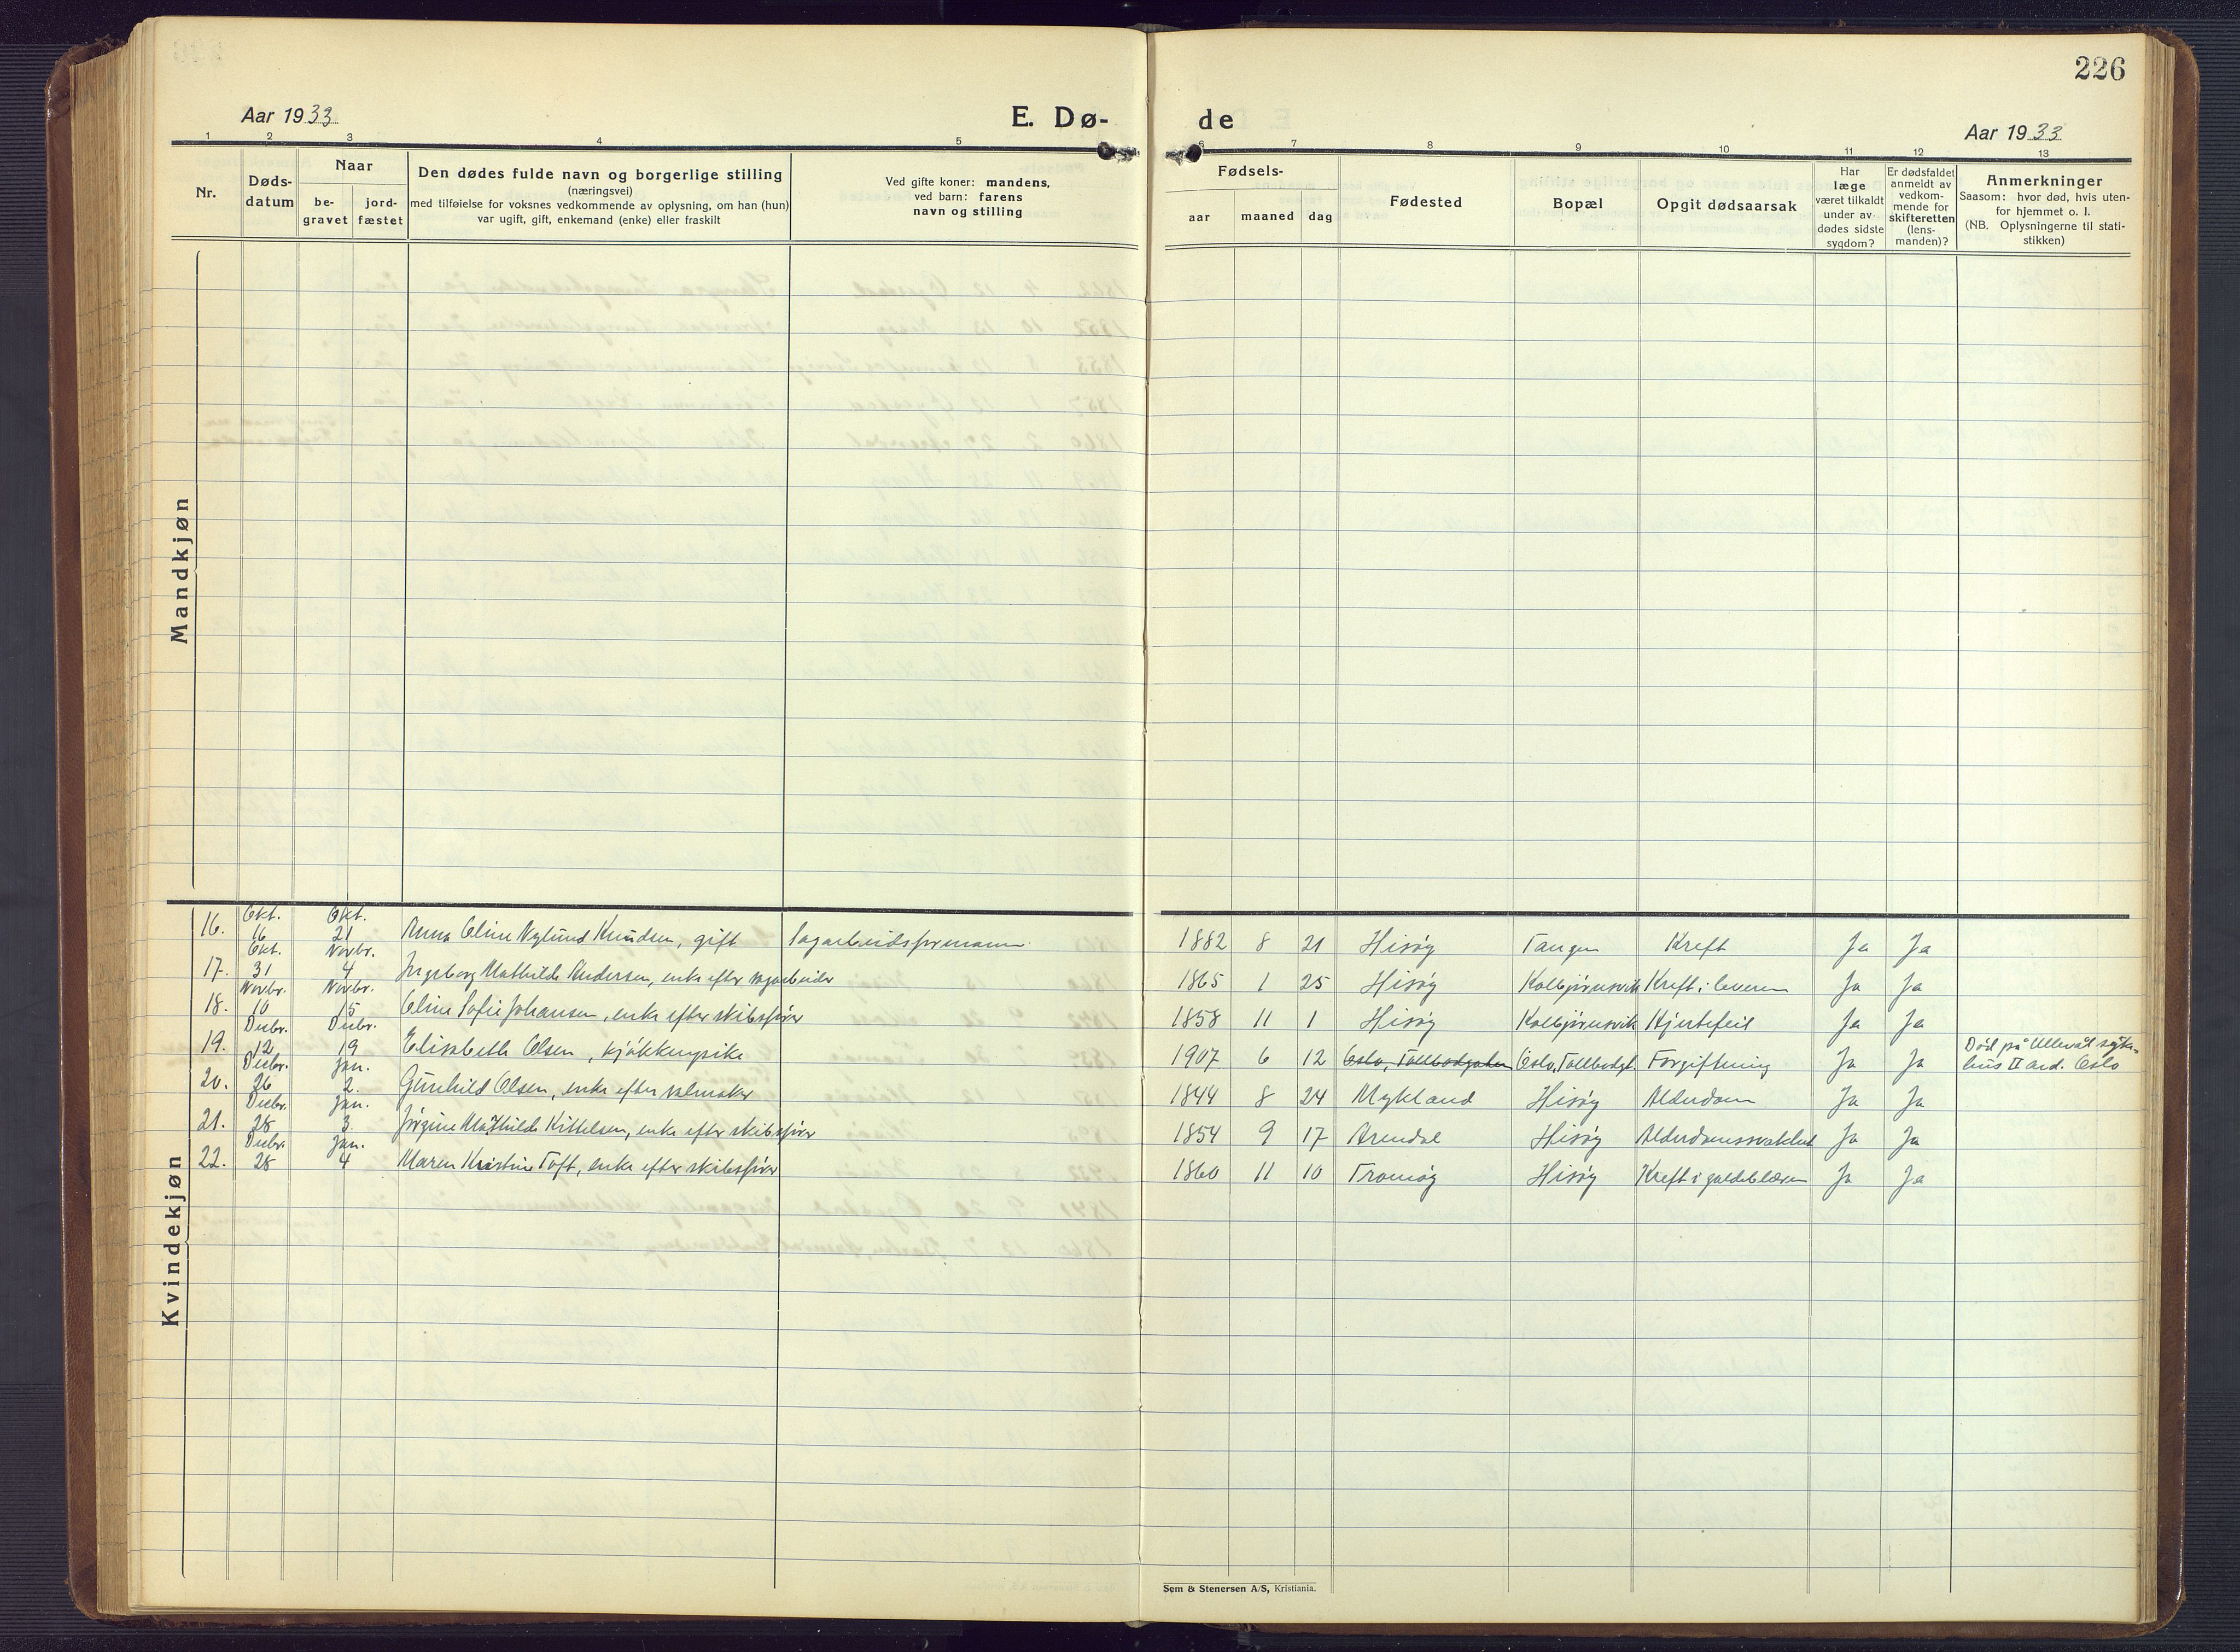 226
Aar 1933 E. Dø- de Aar 1933
1 2 3 4 5 6 7 8 9 10 11 12 13
Nr.
Døds-
datum
Naar
be-
gravet
jord-
fæstet
Den dødes fulde navn og borgerlige stilling
(næringsvei)
med tilføielse for voksnes vedkommende av oplysning, om han (hun)
var ugift, gift, enkemand (enke) eller fraskilt
Ved gifte koner: mandens,
ved barn: farens
navn og stilling
Fødsels-
aar maaned dag
Fødested
Bopæl
Opgit dødsaarsak
Har
læge
været tilkaldt
under av-
dødes sidste
sygdom?
Er dødsfaldet
anmeldt av
vedkom-
mende for
skifteretten
(lens-
manden)?
Anmerkninger
Saasom: hvor død, hvis uten-
for hjemmet o. l.
(NB. Oplysningerne til stati-
stikken)
Mandkjøn
Kvindekjøn
Okt. Okt.
16. 16 21 Anna Oline Nylund Knudsen, gift Sagarbeidsformann 1882 8 21 Hisøy Tangen Kreft Ja Ja
Okt. Novbr.
17. 31 4 Ingeborg Mathilde Andersen, enke efter sagarbeider 1865 1 25 Hisøy Kolbjørnsvik Kreft i leveren Ja Ja
Novbr. Novbr.
18. 10 15 Oline Sofie Johansen, enke efter skibsfører 1858 11 1 Hisøy Kolbjørnsvik Hjertefeil Ja Ja
Desbr. Desbr.
19. 12 19 Elisabeth Olsen, kjøkkenpike 1907 6 12 Oslo, Tollbodgaten Oslo, Tollbodgt. Forgiftning Ja Ja Død på Ullevål syke-
hus II avd. Oslo
Desbr. Jan.
20. 26 2. Gunhild Olsen, enke efter salmaker 1844 8 24 Mykland Hisøy Alderdom Ja Ja
Desbr. Jan.
21. 28 3. Jørgine Mathilde Kittelsen, enke efter skibsfører 1854 9 17 Arendal Hisøy Alderdomssvakhet Ja Ja
Desbr. Jan.
22. 28 4 Maren Kristine Toft, enke efter skibsfører 1860 11 10 Tromøy Hisøy Kreft i galdeblæren Ja Ja
Sem & Stenersen A/S, Kristiania.